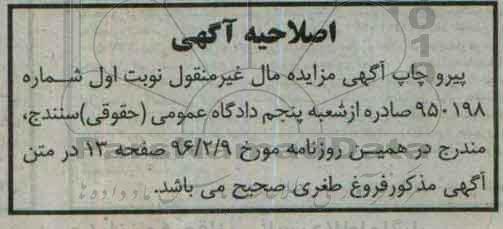 اصلاحیه آگهی
پیرو چاپ آگهی مزایده مال غیرمنقول نوبت اول شماره
۹۵۰۱۹۸ صادره ازشعبه پنجم دادگاه عمومی (حقوقی)سنندج،
مندرج در همین روزنامه مورخ ۹۶/۲/۹ صفحه ۱۳ در متن
آگهی مذکورفروغ طغری صحیح می باشد.